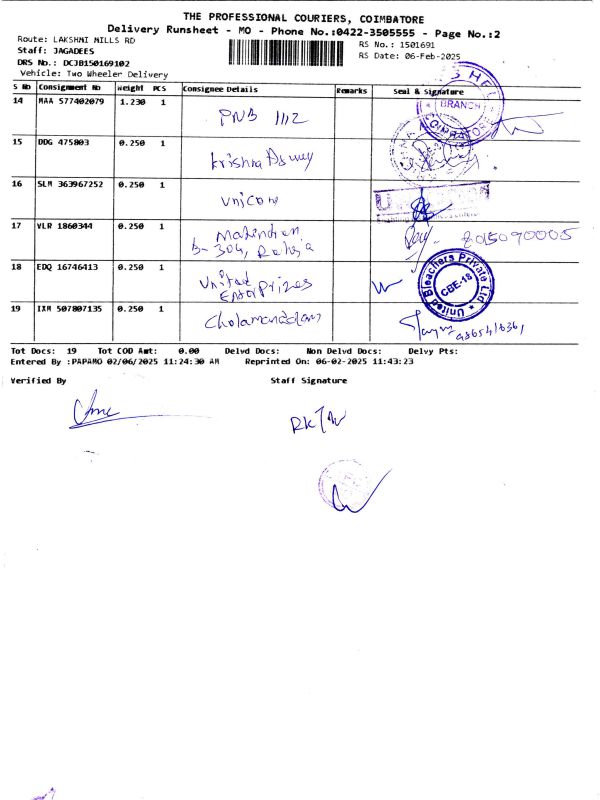 THE PROFESSIONAL COURIERS, COIMBATORE
Delivery Runsheet - MO - Phone No.:0422-3505555 - Page No.:2
Route: LAKSHMI MILLS RD
Staff: JAGADEES
DRS No.: DCJB150169102
Vehicle: Two Wheeler Delivery
RS No.: 1501691
RS Date: 06-Feb-2025
S No Consignment No Weight PCS Consignee Details Remarks Seal & Signature
14 MAA 577402079 1.230 1 PNB 1112
BRANCH
15 DDG 475803 0.250 1 Krishna
16 SLM 363967252 0.250 1 Unicorn
17 VLR 1860344 0.250 1 Mahendran
B-304, 8015090005
18 EDQ 16746413 0.250 1 United
Enterprizes
United Bleachers Private Ltd
CBE-18
19 IXM 507807135 0.250 1 Cholamandalam
Tot Docs: 19 Tot COD Amt: 0.00 Delvd Docs: Non Delvd Docs: Delvy Pts:
Entered By :PAPAMO 02/06/2025 11:24:30 AM Reprinted On: 06-02-2025 11:43:23
Verified By Staff Signature